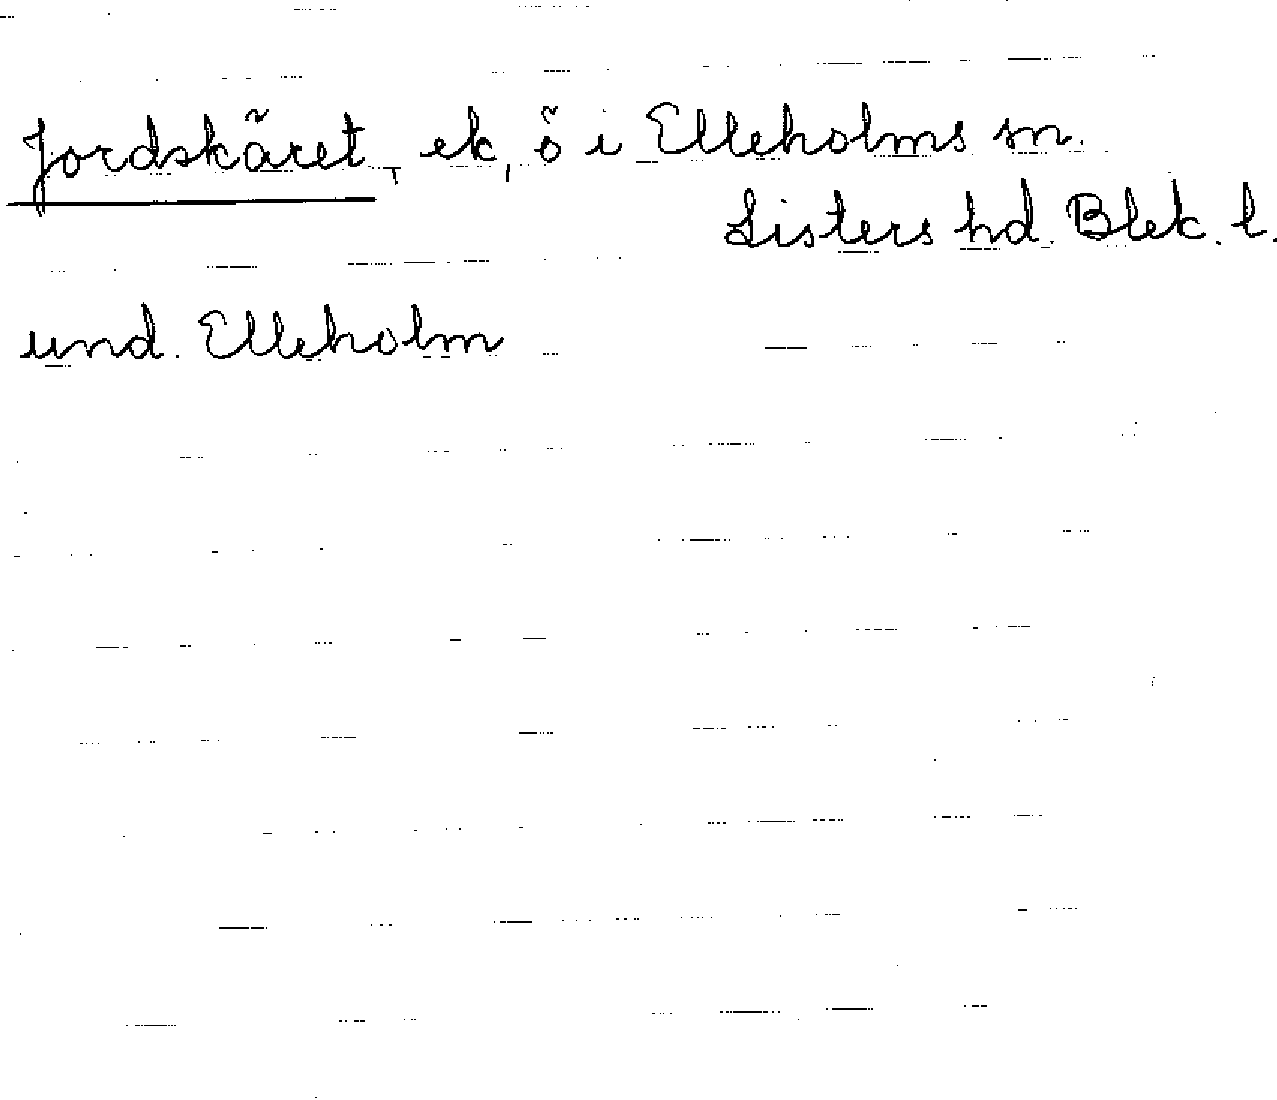 Jordskäret, ek, ö i Elleholms sn.
Listers hd. Blek. l.
und. Elleholm